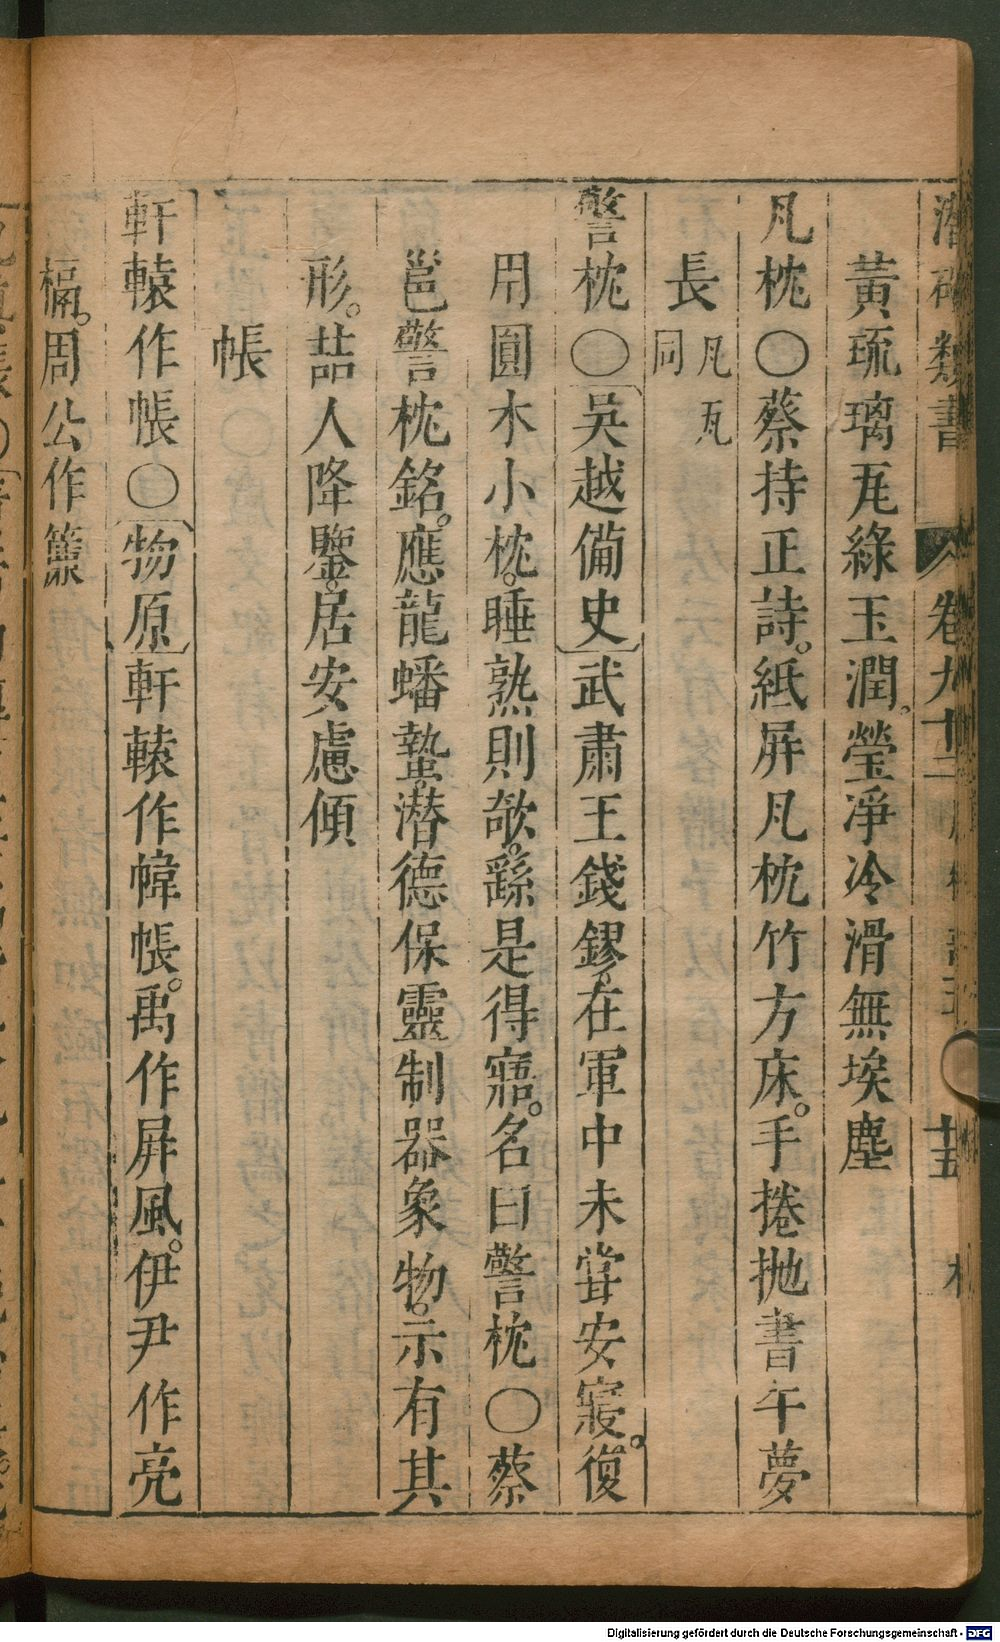 潛確類書 卷九十三 十五
黃琉璃瓦綠玉潤。瑩凈冷滑無埃塵
凡枕○蔡持正詩。紙屏凡枕竹方床。手捲拋書午夢
長凡瓦同
警枕○〔吳越備史〕武肅王錢鏐。在軍中未甞安寢。復
用圓木小枕。睡熟則欹。繇是得寤。名曰警枕○蔡
邕警枕銘。應龍蟠蟄。潛德保靈制器象物。示有其
形。喆人降鑒。居安慮傾
帳
軒轅作帳○〔物原〕軒轅作幃帳。禹作屏風。伊尹作亮
槅。周公作簾
Digitalisierung gefördert durch die Deutsche Forschungsgemeinschaft - DFG